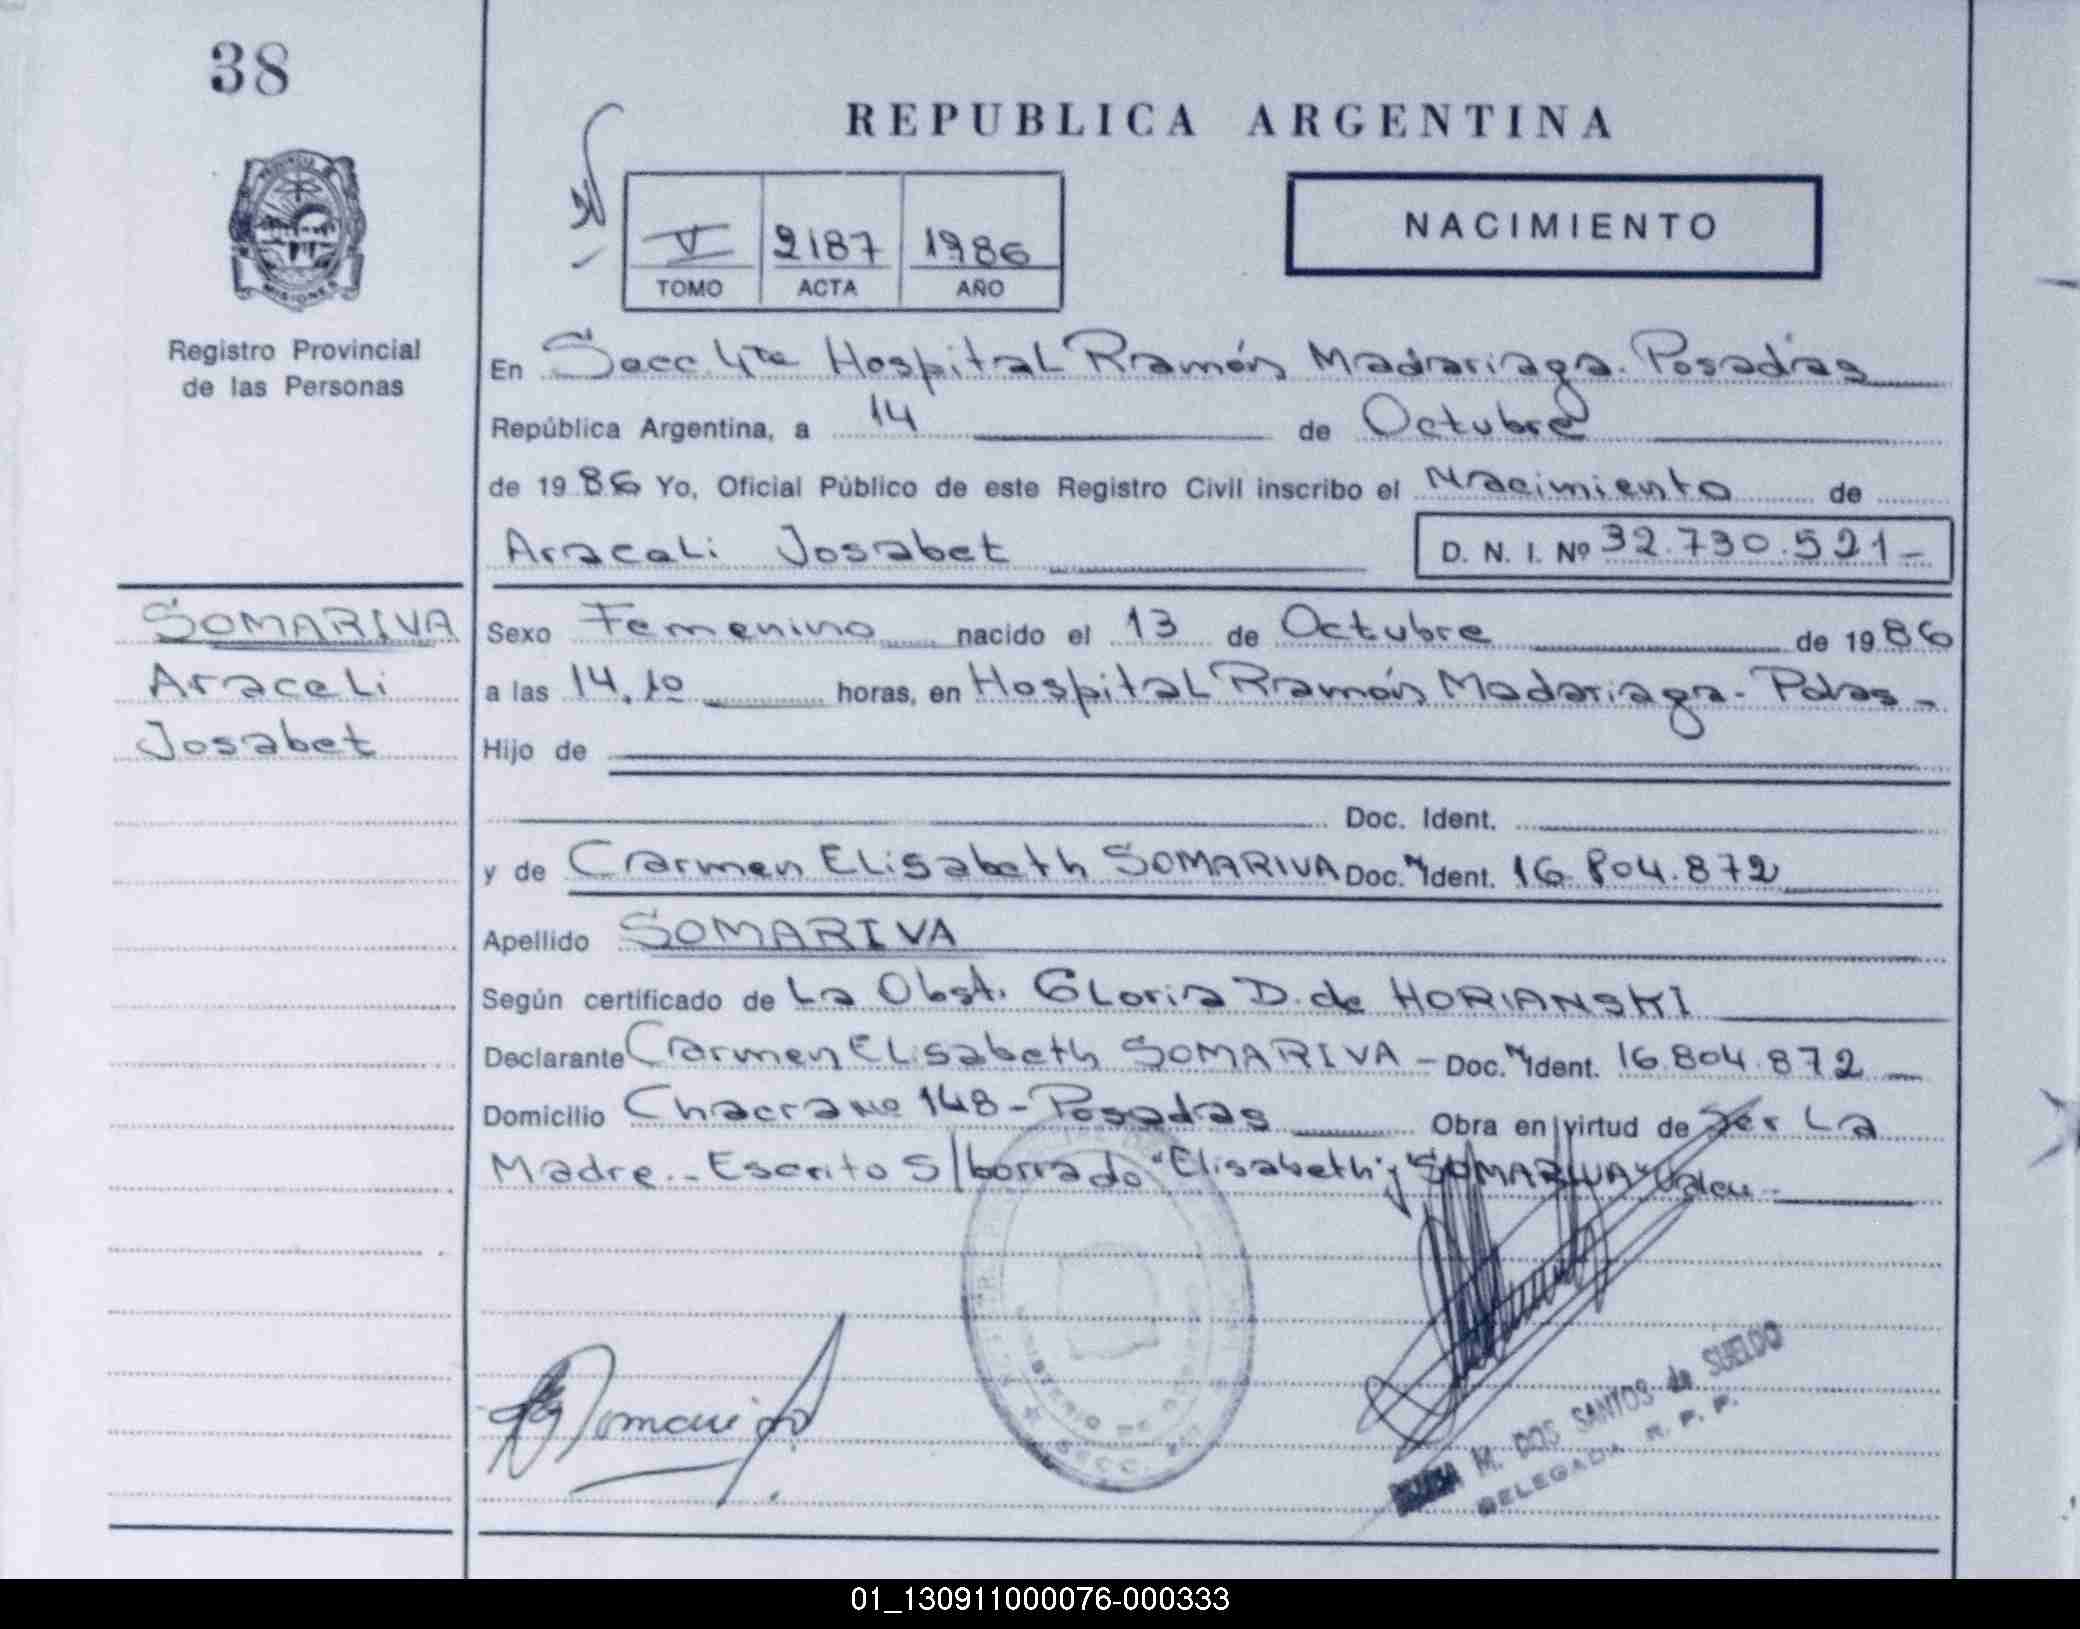 38
REPUBLICA ARGENTINA
V 2187 1986
TOMO ACTA AÑO
NACIMIENTO
PROVINCIA DE
MISIONES
Registro Provincial
de las Personas
En Secc 4ta Hospital Ramón Madariaga. Posadas
República Argentina, a 14 de Octubre
de 1986 Yo, Oficial Público de este Registro Civil inscribo el Nacimiento de
Araceli Josabet D. N. I. Nº 32.730.521-
SOMARIVA
Araceli
Josabet
Sexo Femenino nacido el 13 de Octubre de 1986
a las 14,10 horas, en Hospital Ramón Madariaga- Pdas-
Hijo de
Doc. Ident.
y de Carmen Elisabeth SOMARIVA Doc. Ident. 16.804.872
Apellido SOMARIVA
Según certificado de La Obst. Gloria D. de HORIANSKI
Declarante Carmen Elisabeth SOMARIVA - Doc. Ident. 16.804.872
Domicilio Chacra Nº 148 - Posadas Obra en virtud de Ser La
Madre.- Escrito S/borrado "Elisabeth" y "SOMARIVA" Valen-
MINISTERIO DE
SECC.
M. DOS SANTOS de SUELDO
DELEGADA R. P. P.
01_130911000076-000333